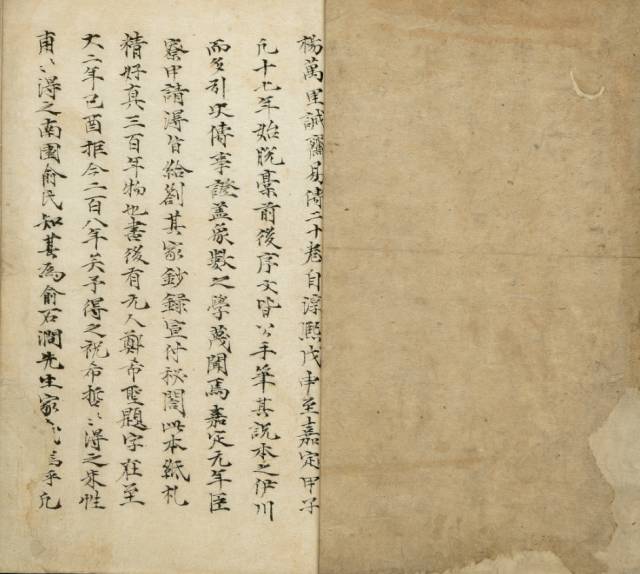 楊萬里誠齋易傳二十卷自淳熙戊申至嘉定甲子
凡十七年始脫藁前後序文皆公手筆其說本之伊川
而多引史傳事證蓋象數之學蔑聞焉嘉定元年臣
寮申請得旨給劄其家鈔録宣付秘閣此本紙札
精好真三百年物也書後有元人鄭希聖題字在至
大二年己酉距今二百八年矣予得之祝希哲〻得之朱性
甫〻得之南園俞氏知其為俞石澗先生家